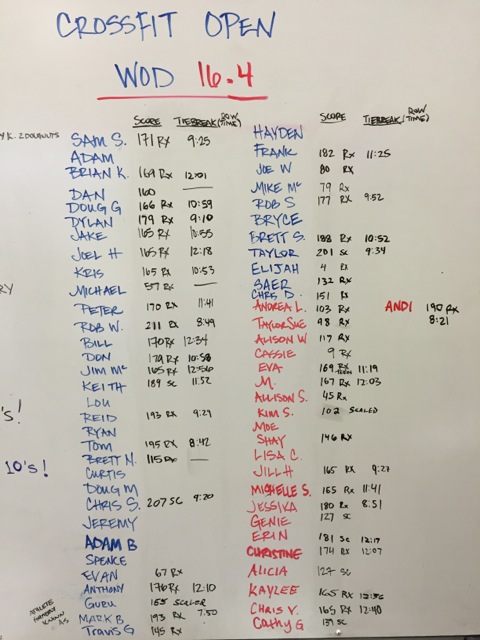 CROSSFIT OPEN
WOD 16.4
SCORE TIEBREAK (ROW TIME)
K. 2 DOUGHNUTS
SAM S. 171 RX 9:25
ADAM
BRIAN K. 169 RX 12:01
DAN 160
DOUG G 166 RX 10:59
DYLAN 179 RX 9:10
JAKE 165 RX 10:55
JOEL H 165 RX 12:18
KRIS 165 RX 10:53
RY
MICHAEL 57 RX
PETER 170 RX 11:41
ROB W. 211 RX 8:49
BILL 170 RX 12:34
DON 179 RX 10:58
JIM Mc 165 RX 12:56
KEITH 189 SC 11:52
LOU
's!
REID 193 RX 9:29
RYAN
TOM 195 RX 8:42
BRETT M. 115 RX
10's!
CURTIS
DOUG M
CHRIS S. 207 SC 9:20
JEREMY
ADAM B
SPENCE
EVAN 67 RX
ANTHONY 176 RX 12:10
ATHLETE FORMERLY KNOWN AS
GURU 155 SCALED
MARK B 193 RX 7:50
TRAVIS G 145 RX
SCORE TIEBREAK (ROW TIME)
HAYDEN
FRANK 182 RX 11:25
JOE W 80 RX
MIKE Mc 79 RX
ROB S 177 RX 9:52
BRYCE
BRETT S. 188 RX 10:52
TAYLOR 201 SC 9:34
ELIJAH 4 RX
SAER 132 RX
CHRIS D. 151 RX
ANDREA L. 103 RX
ANDI 190 RX
8:21
TAYLOR SUE 98 RX
ALISON W 117 RX
CASSIE 9 RX
EVA 169 RX 11:19
M. 167 RX 12:03
ALLISON S. 45 RX
KIM S. 102 SCALED
MOE
SHAY 146 RX
LISA C.
JILL H 165 RX 9:27
MICHELLE S. 165 RX 11:41
JESSIKA 180 RX 8:51
GENIE 127 SC
ERIN 181 SC 12:17
CHRISTINE 174 RX 12:07
ALICIA 127 SC
KAYLEE 165 RX 12:36
CHRIS V. 165 RX 12:40
CATHY G 139 SC